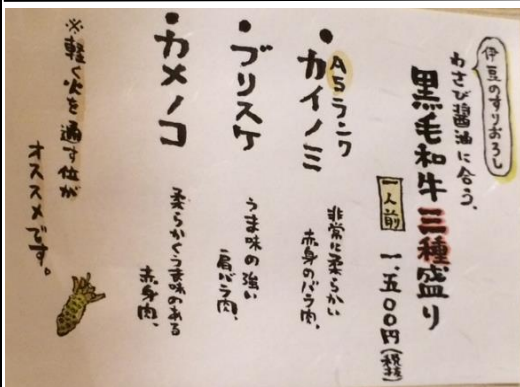 伊豆のすりおろし
わさび醤油に合う、
黒毛和牛三種盛り
一人前 一、五００円(税抜)
A5ランク
・カイノミ 非常に柔らかい
赤身のバラ肉。
・ブリスケ うま味の強い
肩バラ肉。
・カメノコ 柔らかくうま味のある
赤身肉。
※軽く火を通す位が
オススメです。